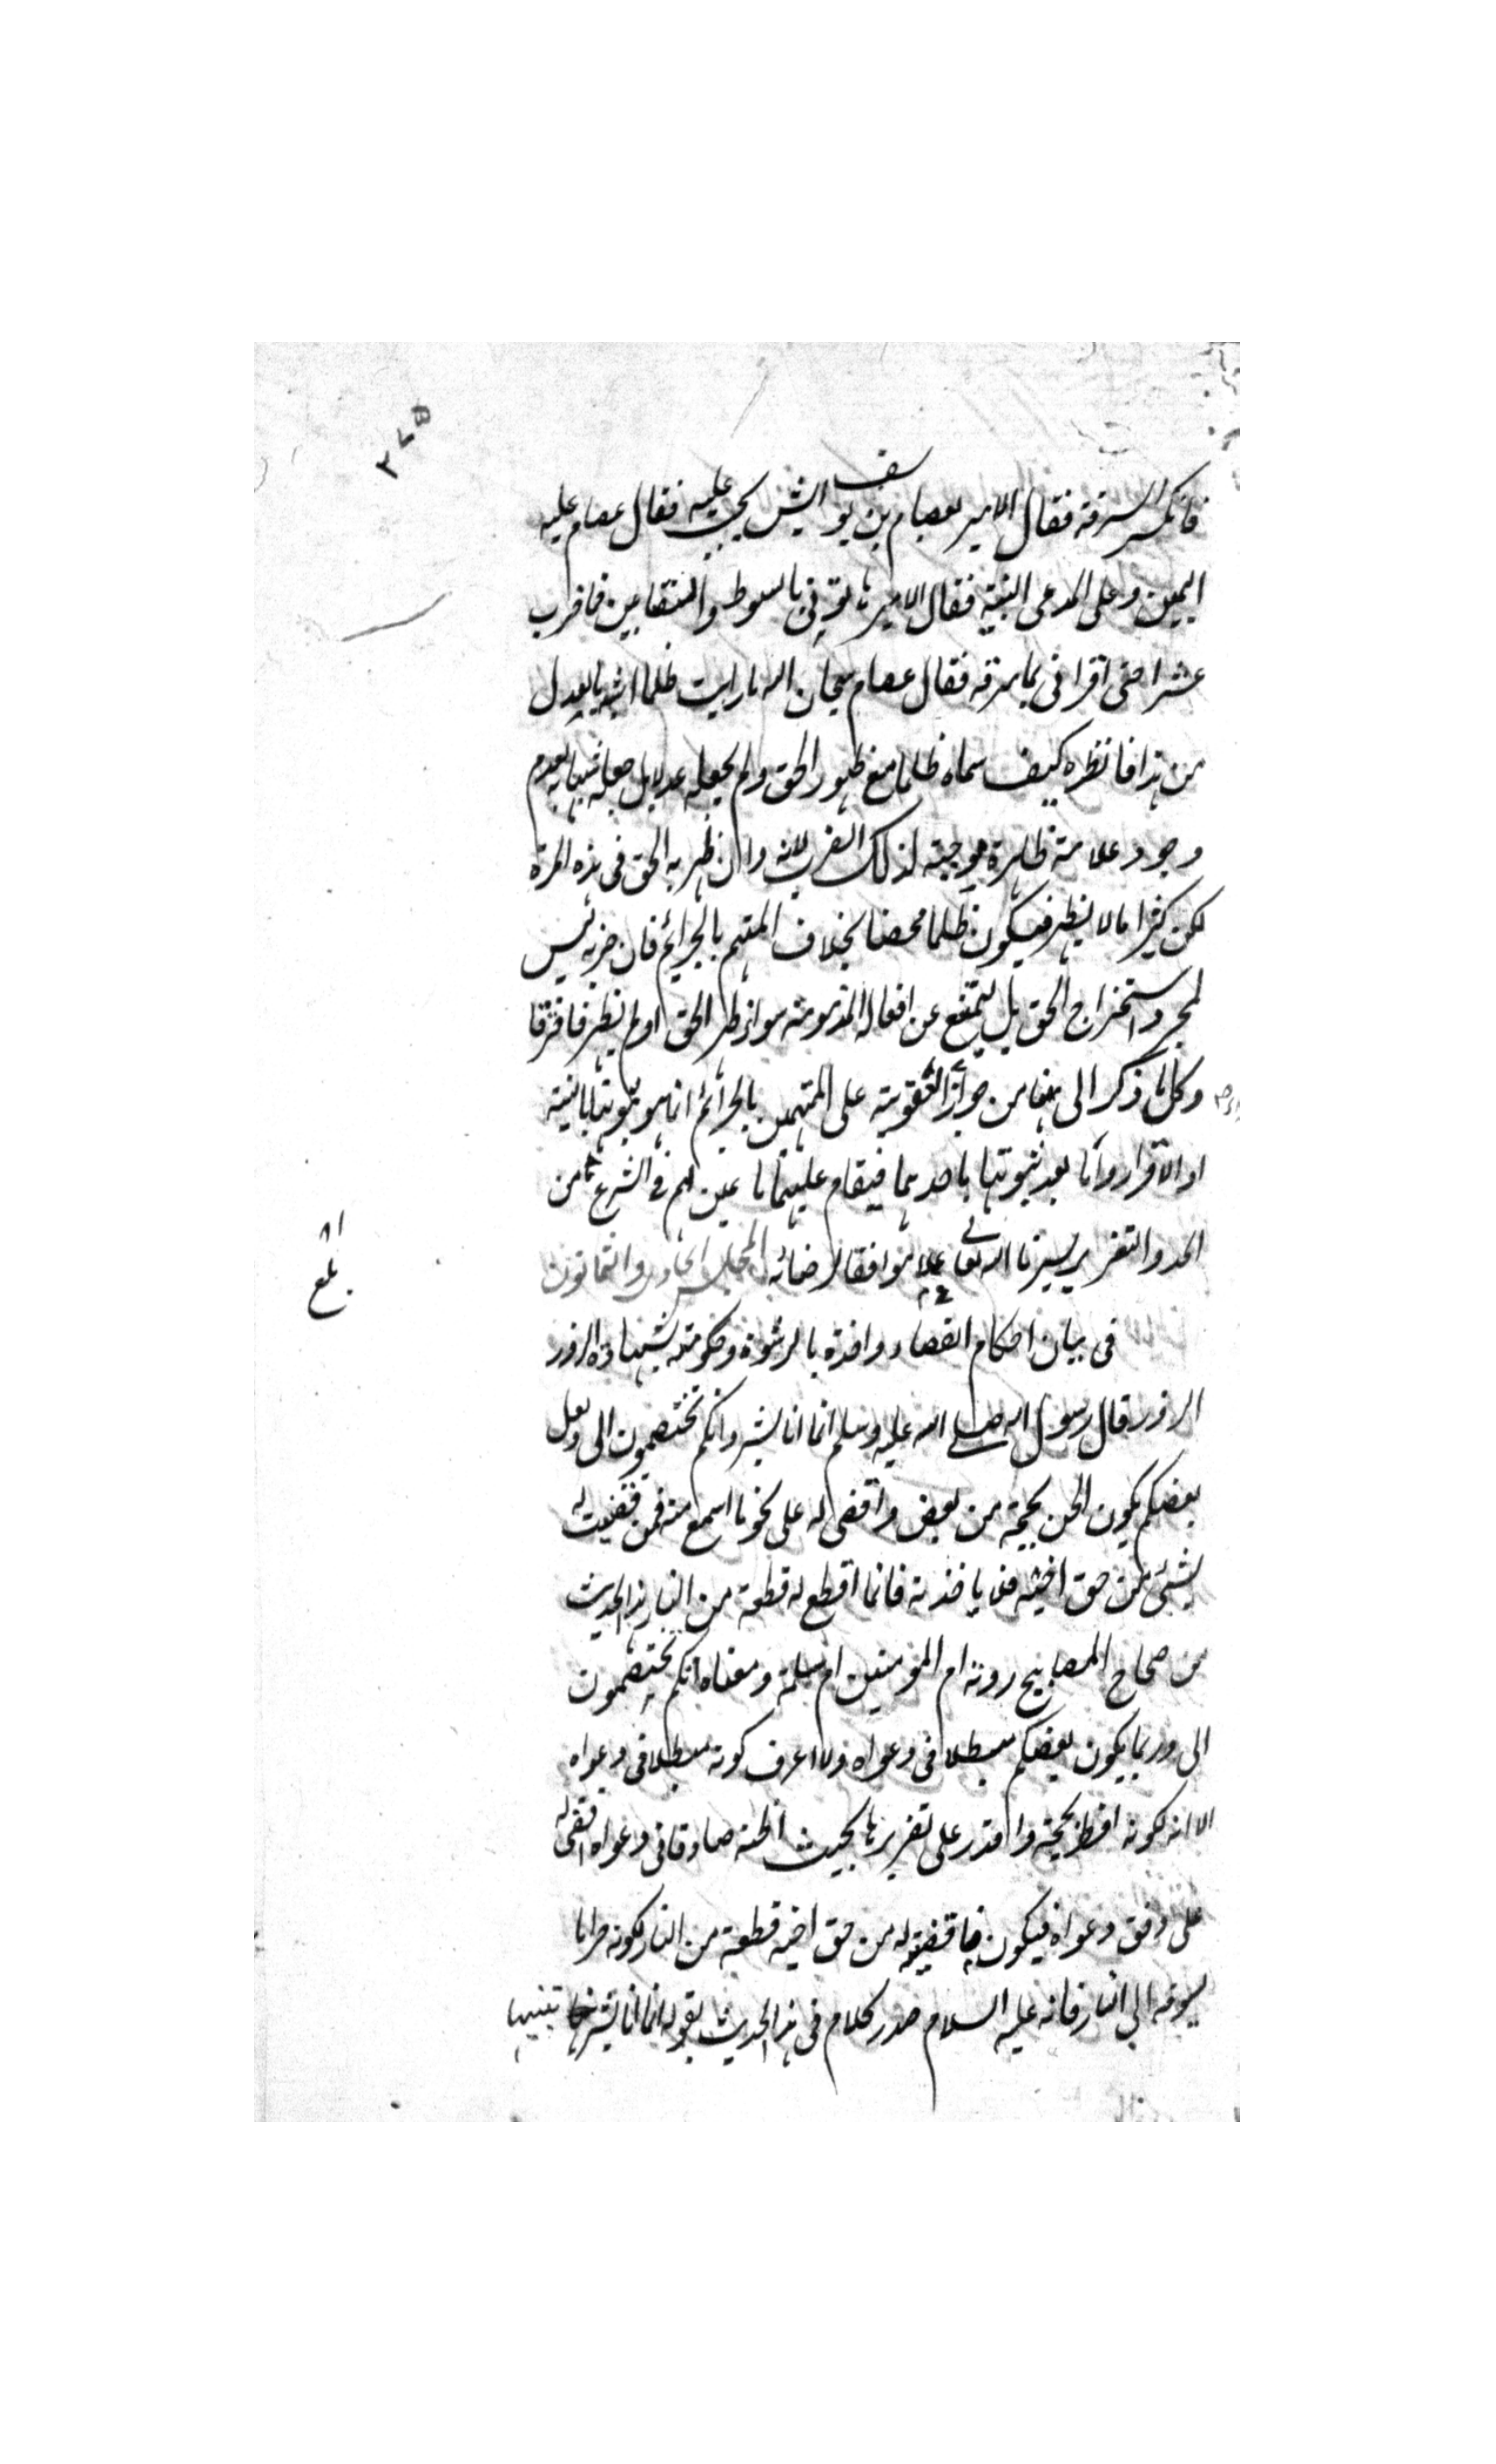 ٣٧٥
فانكر السرقة فقال الامير لعصام بن يوسف ايش يجب عليه فقال عصام عليه
اليمين وعلى المدعى البينة فقال الامير هاتونى بالسوط والعقابين فما ضرب
عشرا حتى اقر اتى بما سرقه فقال عصام سبحان الله ما رايت ظلما اشبه بالعدل
من هذا فانظره كيف سماه ظلما مع ظهور الحق ولم يجعله عدلا بل جعله شبيها به لعدم
وجود علامة ظاهرة موجبة لذلك الضرب لانه وان ظهر به الحق فى هذه المرة
لكن كثيرا ما لا يظهر فيكون ظلما محضا بخلاف المتهم بالجرائم فان ضربه ليس
لمجرد استخراج الحق بل ليمتنع عن افعاله المذمومة سواء ظهر الحق او لم يظهر فافترقا
وكل ما ذكر الى هنا من جواز العقوبة على المتهمين بالجرائم انما هو قبل ثبوتها بالبينة
او الاقرار واما بعد ثبوتها باحدهما فيقام عليهم ما عين لهم فى الشرع من
الحد والتعزير يسرنا الله تعالى عملا موافقا لرضائه المجلس الحادى والثمانون
٨١
بلغ
فى بيان احكام القضاء واخذه بالرشوة وحكومته بشهادة الزور
الزور قال رسول الله صلى الله عليه وسلم انما انا بشر وانكم تختصمون الى ولعل
بعضكم يكون الحن بحجته من بعض واقضى له على نحو ما اسمع منه فمن قضيت له
بشئ من حق اخيه فلا ياخذنه فانما اقطع له قطعة من النار هذا الحديث
من صحاح المصابيح روته ام المؤمنين ام سلمة ومعناه انكم تختصمون
الى وربما يكون بعضكم مبطلا فى دعواه ولا اعرف كونه مبطلا فى دعواه
الا انه لكونه افطن بحجته واقتدر على تقريرها بحيث اظنه صادقا فى دعواه اقضى له
على وفق دعواه فيكون ما قضيته له من حق اخيه قطعة من النار لكونه حراما
يسوقه الى النار فانه عليه السلام صدر كلام فى هذا الحديث بقوله انما انا بشر تنبيها